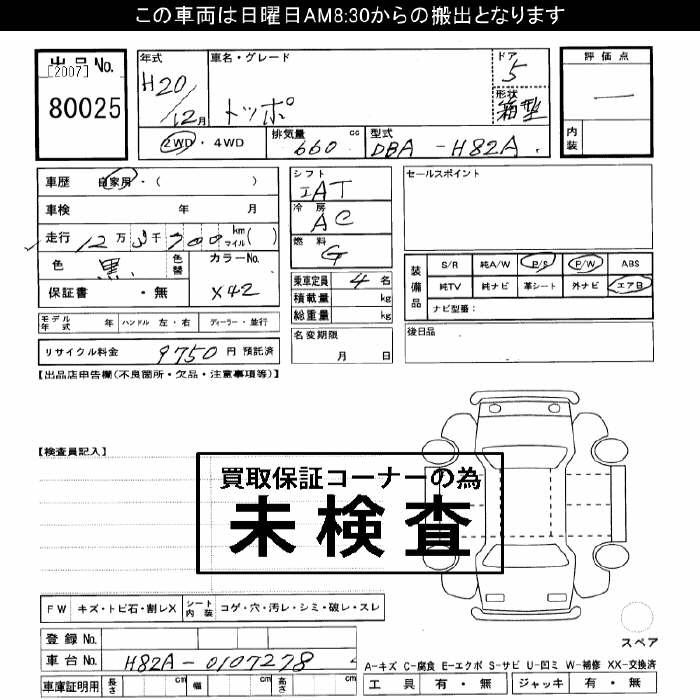 この車両は日曜日AM8:30からの搬出となります
出品No.
[2007]
80025
年式
H20/12月
車名・グレード
トッポ
ドア
5
形状
箱型
評価点
―
内装
2WD・4WD
排気量
660 cc
型式
DBA-H82A
車歴 自家用・( )
車検 年 月
走行 12万3千700 km マイル( )
色 黒
色替
カラーNo.
X42
保証書 ・無
シフト
IAT
冷房
AC
燃料
G
乗車定員 4名
積載量 kg
総重量 kg
セールスポイント
装備品
S/R 純A/W P/S P/W ABS
純TV 純ナビ 革シート 外ナビ エアB
ナビ型番:
モデル年式 年 ハンドル 左・右 ディーラー・並行
リサイクル料金 9750 円 預託済
名変期限
月 日
後日品
【出品店申告欄(不良箇所・欠品・注意事項等)】
【検査員記入】
買取保証コーナーの為
未検査
FW キズ・トビ石・割レX シート内装 コゲ・穴・汚レ・シミ・破レ・スレ
登録No.
車台No. H82A-0107278
車庫証明用 長さ cm 幅 cm 高さ cm
スペア
A-キズ C-腐食 E-エクボ S-サビ U-凹ミ W-補修 XX-交換済
工具 有・無 ジャッキ 有・無